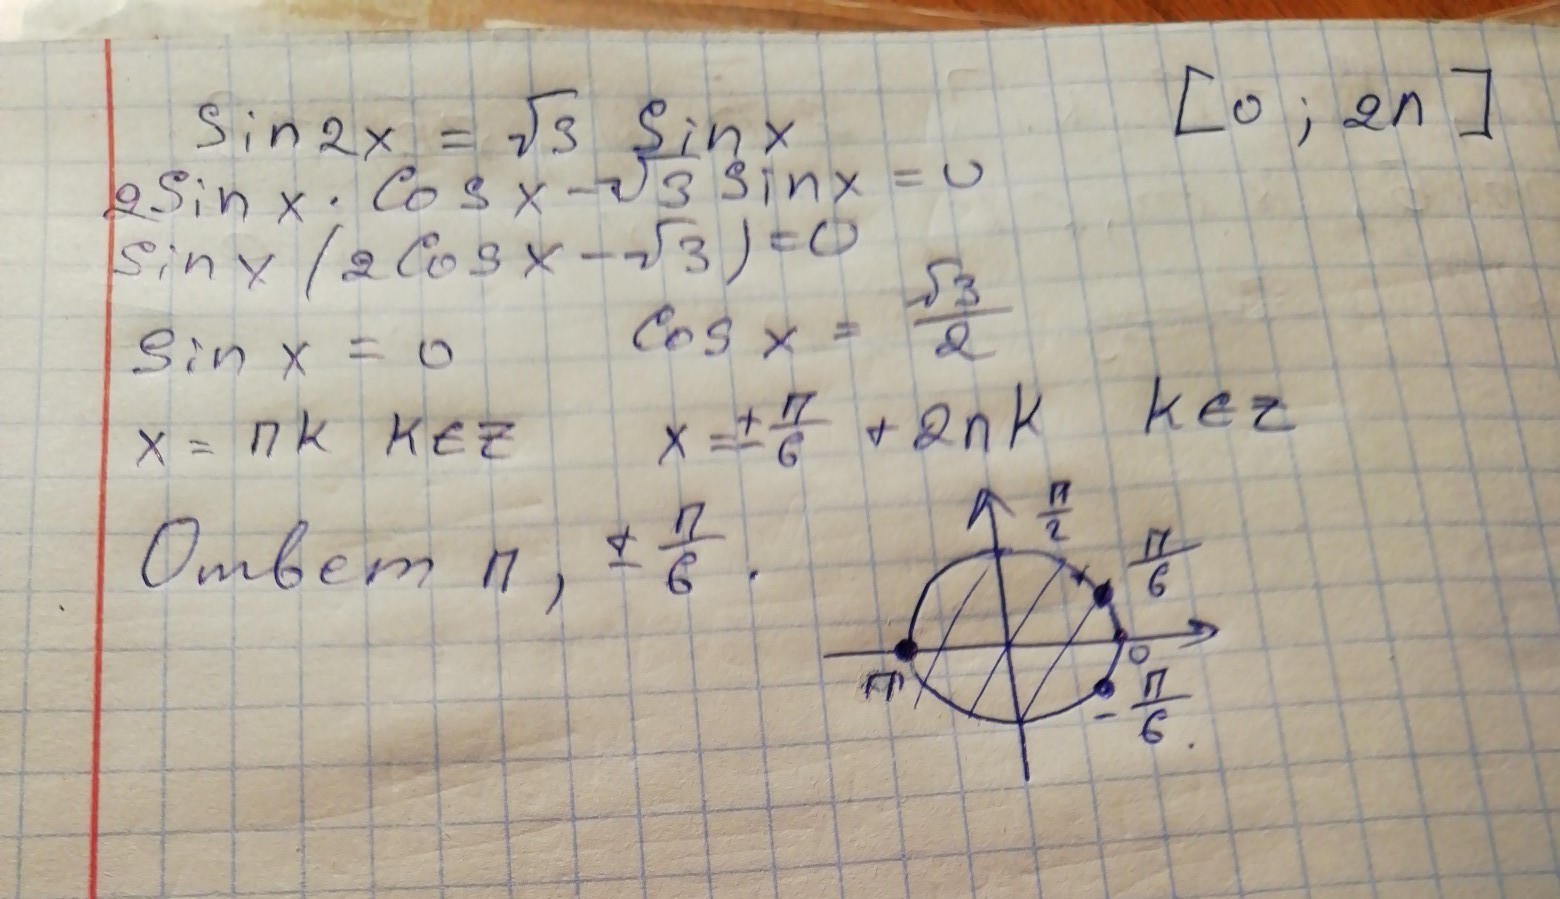 Sin2x = √3 Sin x [0 ; 2π]
2Sin x · Cos x - √3 sin x = 0
Sin x (2 Cos x - √3) = 0
Sin x = 0 Cos x = √3/2
x = πk k∈z x = ± π/6 + 2πk k∈z
Ответ π, ± π/6 .
π/2
π/6
0
π
- π/6 .